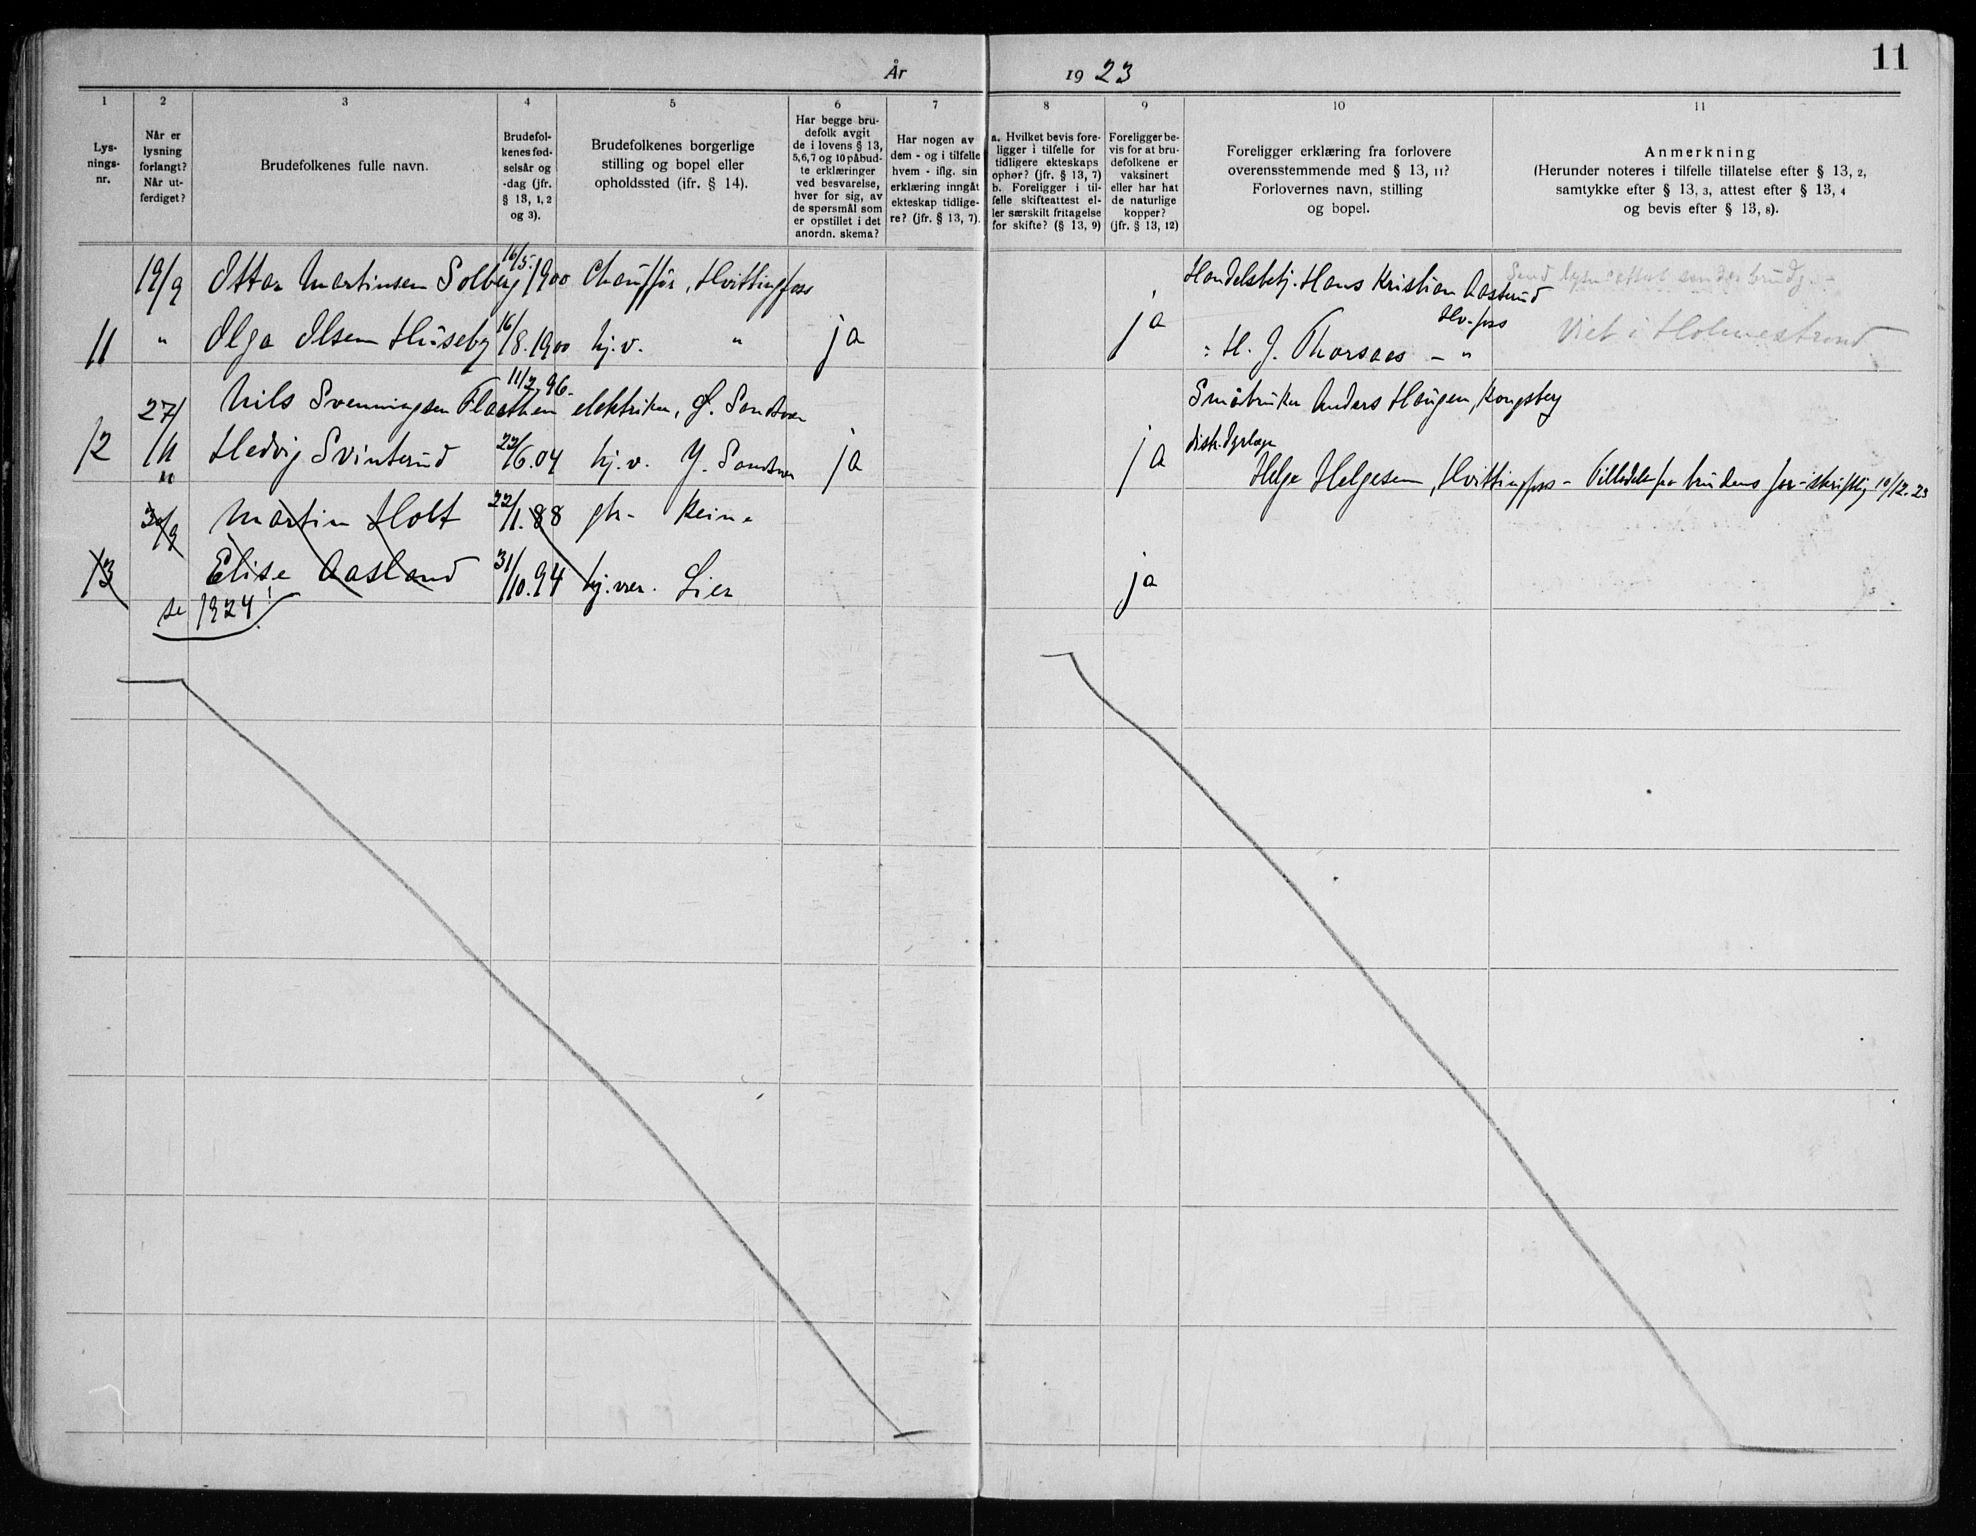 11
År 1923
1 2 3 4 5 6 7 8 9 10 11
Lys-
nings-
nr.
Når er
lysning
forlangt?
Når ut-
ferdiget?
Brudefolkenes fulle navn.
Brudefol-
kenes fød-
selsår og
-dag (jfr.
§ 13, 1, 2
og 3).
Brudefolkenes borgerlige
stilling og bopel eller
opholdssted (ifr. § 14).
Har begge bru-
defolk avgit
de i lovens § 13,
5,6,7 og 10 påbud-
te erklæringer
ved besvarelse,
hver for sig, av
de spørsmål som
er opstillet i det
anordn. skema?
Har nogen av
dem - og i tilfelle
hvem - iflg. sin
erklæring inngått
ekteskap tidlige-
re? (jfr. § 13, 7).
a. Hvilket bevis fore-
ligger i tilfelle for
tidligere ekteskaps
ophør? (jfr. § 13, 7)
b. Foreligger i til-
felle skifteattest el-
ler særskilt fritagelse
for skifte? (§ 13, 9)
Foreligger be-
vis for at bru-
defolkene er
vaksinert
eller har hat
de naturlige
kopper?
(jfr. § 13, 12)
Foreligger erklæring fra forlovere
overensstemmende med § 13, 11?
Forlovernes navn, stilling
og bopel.
Anmerkning
(Herunder noteres i tilfelle tillatelse efter § 13, 2,
samtykke efter § 13, 3, attest efter § 13, 4
og bevis efter § 13, 8).
19/9 Ottar Martinsen Solberg 16/5. 1900 Chauffør, Hvittingfoss Handelsbetj. Hans Kristian Aasterud
Hv-foss
11 " Olga Olsen Huseby 16/8. 1900 hj.v. " ja ja H. J. Thorsaas - " Viet i Holmestrand
27/11 Nils Svenningsen Flaathen 11/7 96. elektriker, Ø. Sandsvær Småbruker Anders Haugen, Kongsberg
12 Hedvig Svinterud 22/6.04 hj.v. Y. Sandsvær ja ja distr.dyrlæge
Helge Helgesen, Hvittingfoss - Tilladelse fra brudens far - skriftlig 10/12.23
30/9 Martin Holt 22/1.88 Rein.
13 Elise Aasland 31/10.94 hj.vær. Lier ja
se 1924!